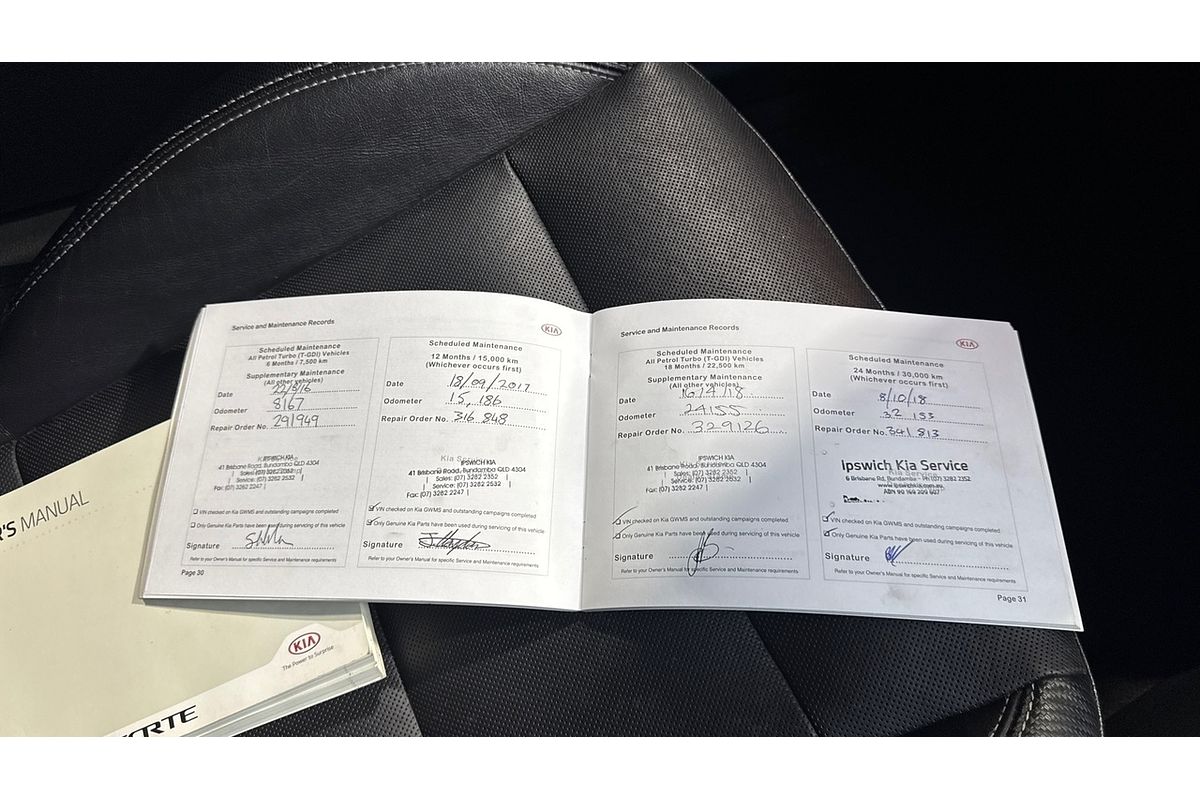 Service and Maintenance Records
KIA
Scheduled Maintenance
All Petrol Turbo (T-GDI) Vehicles
6 Months / 7,500 km
Supplementary Maintenance
(All other vehicles)
Date 22/8/16
Odometer 8167
Repair Order No. 291949
IPSWICH KIA
41 Brisbane Road, Bundamba QLD 4304
Sales: (07) 3282 2352
Service: (07) 3282 2532
Fax: (07) 3282 2247
VIN checked on Kia GWMS and outstanding campaigns completed
Only Genuine Kia Parts have been used during servicing of this vehicle
Signature
Refer to your Owner's Manual for specific Service and Maintenance requirements
Page 30
Scheduled Maintenance
12 Months / 15,000 km
(Whichever occurs first)
Date 18/09/2017
Odometer 15,186
Repair Order No. 316 848
Kia Service
IPSWICH KIA
41 Brisbane Road, Bundamba QLD 4304
Sales: (07) 3282 2352
Service: (07) 3282 2532
Fax: (07) 3282 2247
VIN checked on Kia GWMS and outstanding campaigns completed
Only Genuine Kia Parts have been used during servicing of this vehicle
Signature
Refer to your Owner's Manual for specific Service and Maintenance requirements
Service and Maintenance Records
KIA
Scheduled Maintenance
All Petrol Turbo (T-GDI) Vehicles
18 Months / 22,500 km
Supplementary Maintenance
(All other vehicles)
Date 16/4/18
Odometer 24155
Repair Order No. 329126
IPSWICH KIA
41 Brisbane Road, Bundamba QLD 4304
Sales: (07) 3282 2352
Service: (07) 3282 2532
Fax: (07) 3282 2247
VIN checked on Kia GWMS and outstanding campaigns completed
Only Genuine Kia Parts have been used during servicing of this vehicle
Signature
Refer to your Owner's Manual for specific Service and Maintenance requirements
Scheduled Maintenance
24 Months / 30,000 km
(Whichever occurs first)
Date 8/10/18
Odometer 32 153
Repair Order No. 341 813
Ipswich Kia Service
6 Brisbane Rd, Bundamba - Ph (07) 3282 2352
www.ipswichkia.com.au
VIN checked on Kia GWMS and outstanding campaigns completed
Only Genuine Kia Parts have been used during servicing of this vehicle
Signature
Refer to your Owner's Manual for specific Service and Maintenance requirements
Page 31
R'S MANUAL
KIA
The Power to Surprise